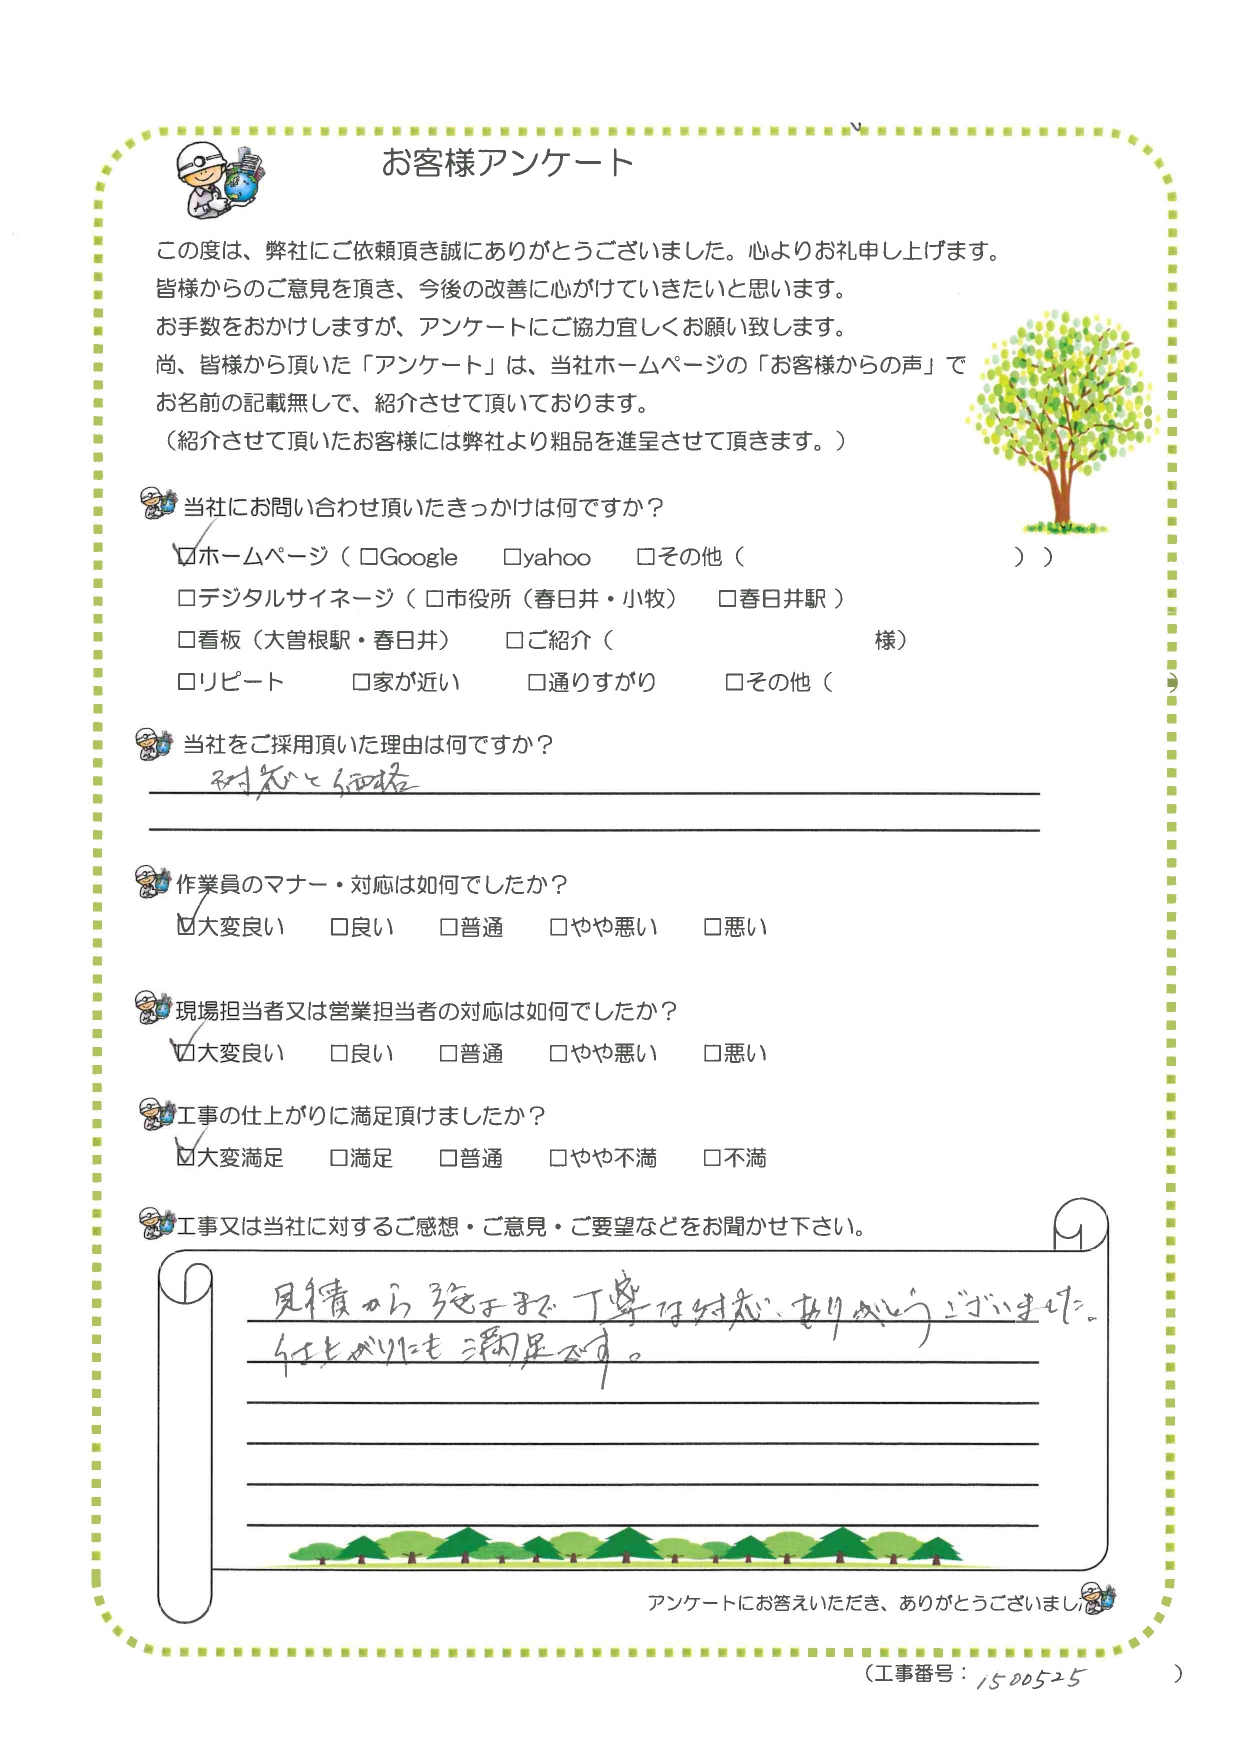 お客様アンケート
この度は、弊社にご依頼頂き誠にありがとうございました。心よりお礼申し上げます。
皆様からのご意見を頂き、今後の改善に心がけていきたいと思います。
お手数をおかけしますが、アンケートにご協力宜しくお願い致します。
尚、皆様から頂いた「アンケート」は、当社ホームページの「お客様からの声」で
お名前の記載無しで、紹介させて頂いております。
（紹介させて頂いたお客様には弊社より粗品を進呈させて頂きます。）
当社にお問い合わせ頂いたきっかけは何ですか？
☑ホームページ（ □Google □yahoo □その他（ ））
□デジタルサイネージ（ □市役所（春日井・小牧） □春日井駅 ）
□看板（大曽根駅・春日井） □ご紹介（ 様）
□リピート □家が近い □通りすがり □その他（ ）
当社をご採用頂いた理由は何ですか？
対応と価格
作業員のマナー・対応は如何でしたか？
☑大変良い □良い □普通 □やや悪い □悪い
現場担当者又は営業担当者の対応は如何でしたか？
☑大変良い □良い □普通 □やや悪い □悪い
工事の仕上がりに満足頂けましたか？
☑大変満足 □満足 □普通 □やや不満 □不満
工事又は当社に対するご感想・ご意見・ご要望などをお聞かせ下さい。
見積から施工まで丁寧な対応、ありがとうございました。
仕上がりにも満足です。
アンケートにお答えいただき、ありがとうございまし
（工事番号：1500525 ）